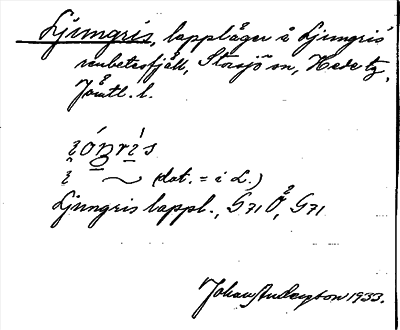 Ljungris, lappläger å Ljungris
renbetesfjäll, Storsjö sn, Hede tg,
Jämtl. l.
(dat. = i L.)
Ljungris lappl., G71 Ö, G71
Johan Anderson 1933.